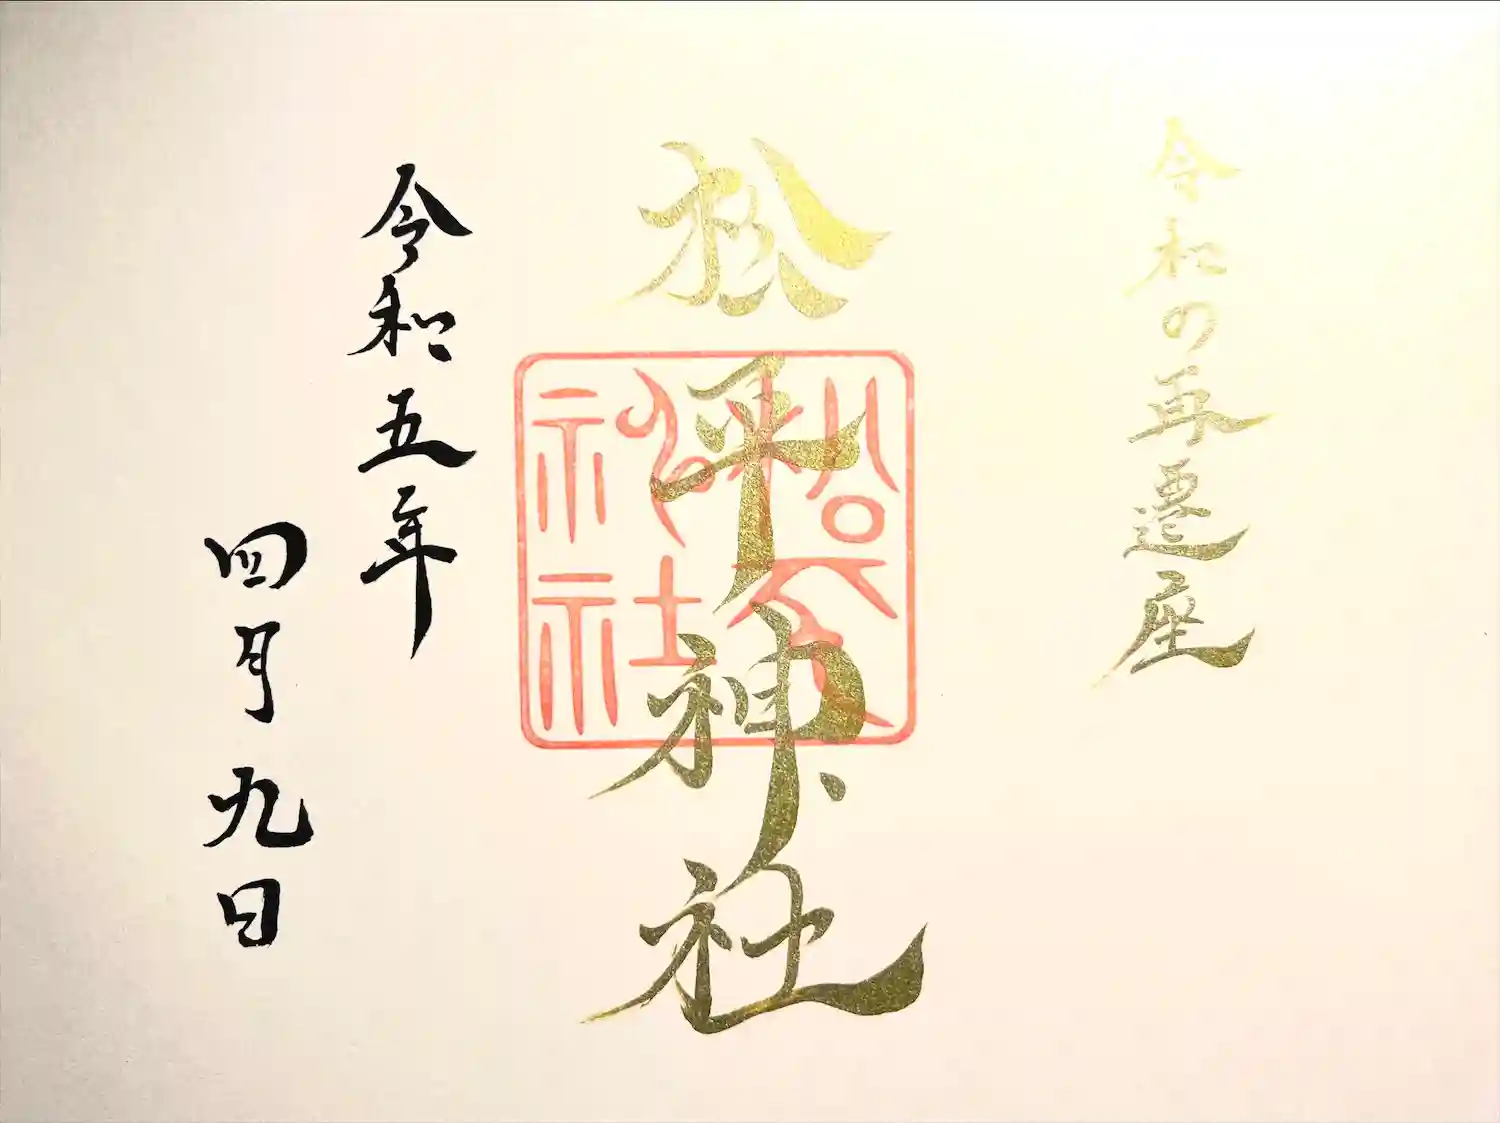 令和の再遷座
松平神社
松平神社
令和五年
四月九日